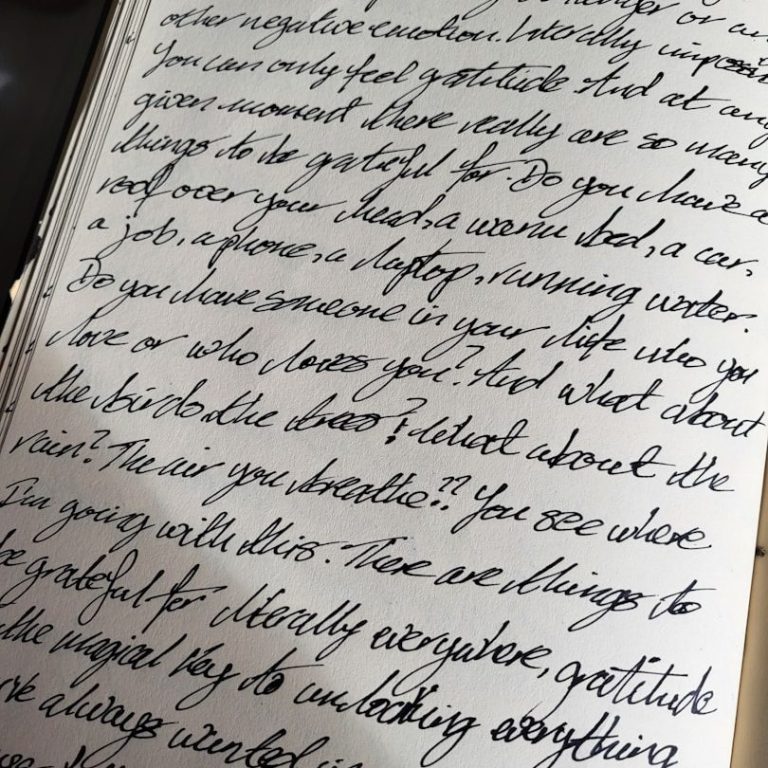 anger or an
other negative emotion. Literally impossi
You can only feel gratitude. And at any
given moment there really are so many
things to be grateful for. Do you have a
roof over your head, a warm bed, a car,
a job, a phone, a laptop, running water?
Do you have someone in your life who you
love or who loves you? And what about
the birds, the trees? What about the
rain? The air you breathe?? You see where
I'm going with this. There are things to
be grateful for literally everywhere, gratitude
the magical key to unlocking everything
always wanted